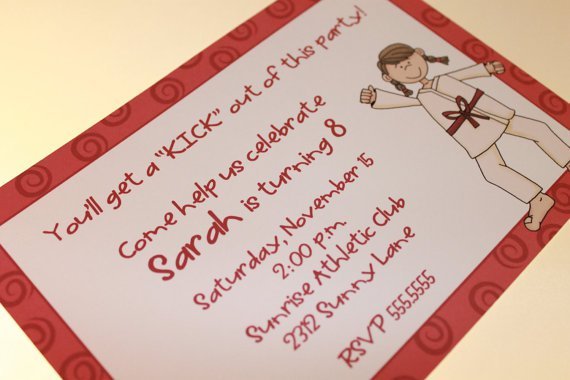 You'll get a "KICK" out of this party!
Come help us celebrate
Sarah is turning 8
Saturday, November 15
2:00 p.m.
Sunrise Athletic Club
2312 Sunny Lane
RSVP 555.5555